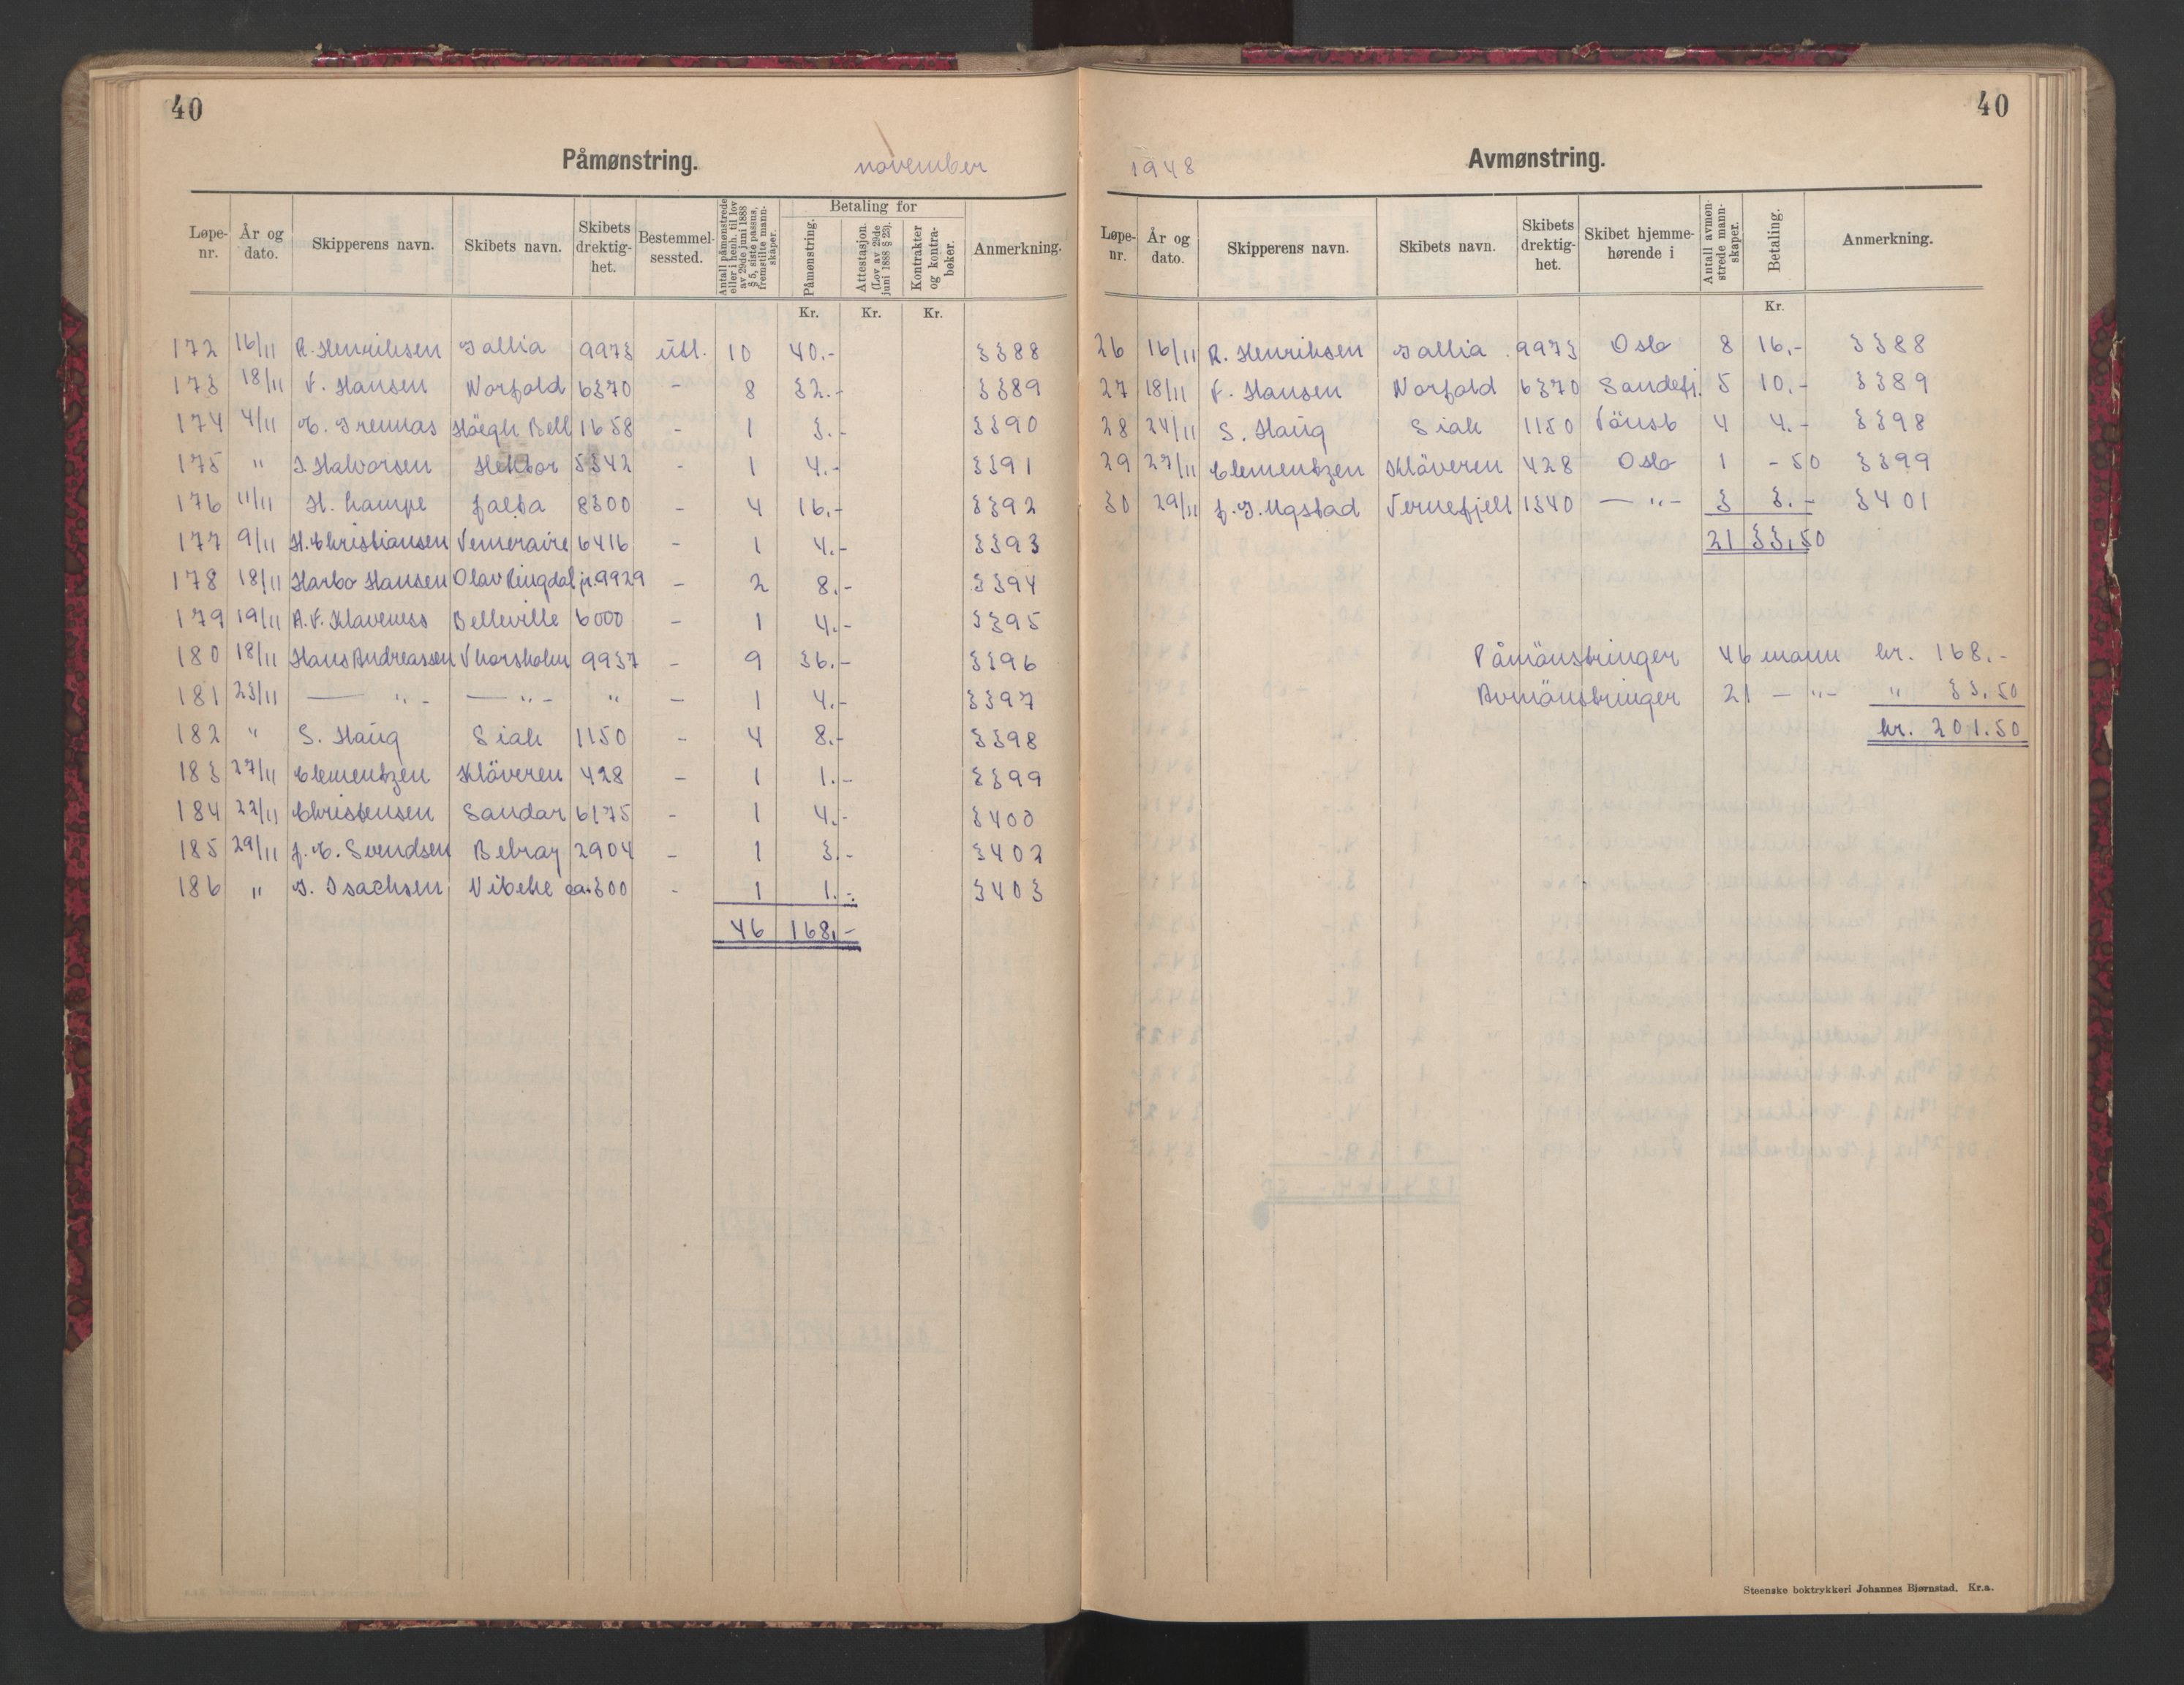 40
Påmønstring. november
Løpe-nr. År og dato. Skipperens navn. Skibets navn. Skibets drektig-het. Bestemmel-sessted. Antall påmønstrede eller i henh. til lov av 29de juni 1888 § 5, siste passus, fremstilte mann-skaper. Betaling for Påmønstring. Attestasjon. (Lov av 29de juni 1888 § 23). Kontrakter og kontra-bøker. Anmerkning.
Kr. Kr. Kr.
172 16/11 R. Henriksen Gallia 9973 utl. 10 40.- 3388
173 18/11 T. Hansen Norfold 6370 - 8 32.- 3389
174 4/11 E. Grennas Höegh Bell 1658 - 1 3.- 3390
175 " J. Halvorsen Hektor 5342 - 1 4.- 3391
176 11/11 H. Kampe Jalta 8300 - 4 16.- 3392
177 9/11 H. Christiansen Temeraire 6416 - 1 4.- 3393
178 18/11 Harbo Hansen Olav Ringdal jr. 9929 - 2 8.- 3394
179 19/11 A. F. Klaveness Belleville 6000 - 1 4.- 3395
180 18/11 Hans Andreassen Thorsholm 9937 - 9 36.- 3396
181 23/11 — " - — " - " - 1 4.- 3397
182 " S. Haug Siak 1150 - 4 8.- 3398
183 27/11 Clementzen Kläveren 428 - 1 1.- 3399
184 22/11 Christensen Sandar 6175 - 1 4.- 3400
185 29/11 J. E. Svendsen Belray 2904 - 1 3.- 3402
186 " J. Isachsen Vibeke ca. 300 - 1 1.- 3403
46 168.-
40
1948 Avmønstring.
Løpe-nr. År og dato. Skipperens navn. Skibets navn. Skibets drektig-het. Skibet hjemme-hørende i Antall avmøn-strede mann-skaper. Betaling. Anmerkning.
Kr.
26 16/11 R. Henriksen Gallia 9973 Oslo 8 16.- 3388
27 18/11 T. Hansen Norfold 6370 Sandefj. 5 10.- 3389
28 24/11 S. Haug Siak 1150 Tönsb 4 4.- 3398
29 27/11 Clementzen Kläveren 428 Oslo 1 - 50 3399
30 29/11 J. G. Ugstad Ternefjell 1340 — " - 3 3.- 3401
21 33,50
Påmönstringer 46 mann kr. 168.-
Avmönstringer 21 - " - " 33.50
kr. 201.50
Steenske boktrykkeri Johannes Bjørnstad. Kr.a.